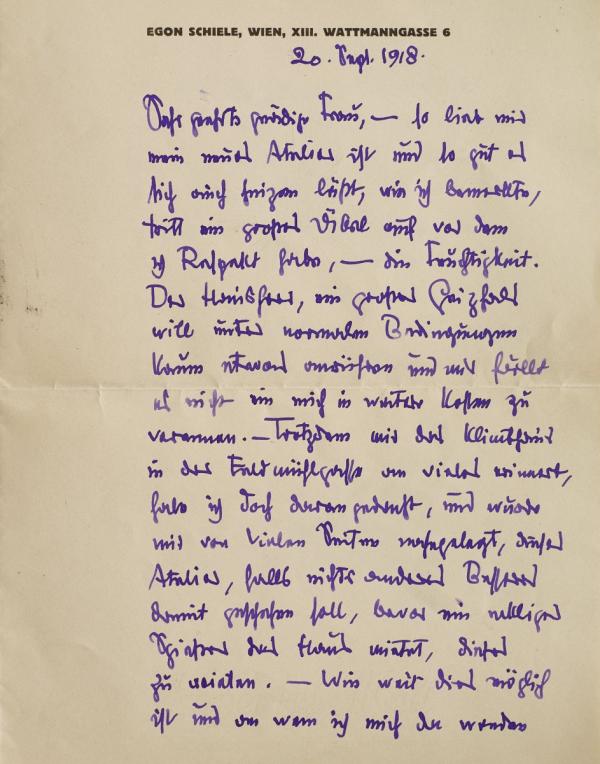 EGON SCHIELE, WIEN, XIII. WATTMANNGASSE 6
20. Sept. 1918.
Sehr geehrte gnädige Frau, — so lieb mir
mein neues Atelier ist und so gut es
sich auch heizen läßt, wie ich bemerkte,
tritt ein großes Übel auf vor dem
ich Respekt habe, — die Feuchtigkeit.
Der Hausherr, ein großer Geizhals
will unter normalen Bedingungen
kaum etwas und mir fällt
es nicht ein mich in weitere Kosten zu
verrennen. — Trotzdem mir das Klimthaus
in der Feldmühlgasse an vieles erinnert,
habe ich doch daran gedacht, und wurde
mir von vielen Seiten nahegelegt, dieses
Atelier, falls nichts anderes Besseres
damit geschehen soll, bevor ein
Spießer das Haus mietet, dieses
zu mieten. — Wie weit dies möglich
ist und an wem ich mich da wenden